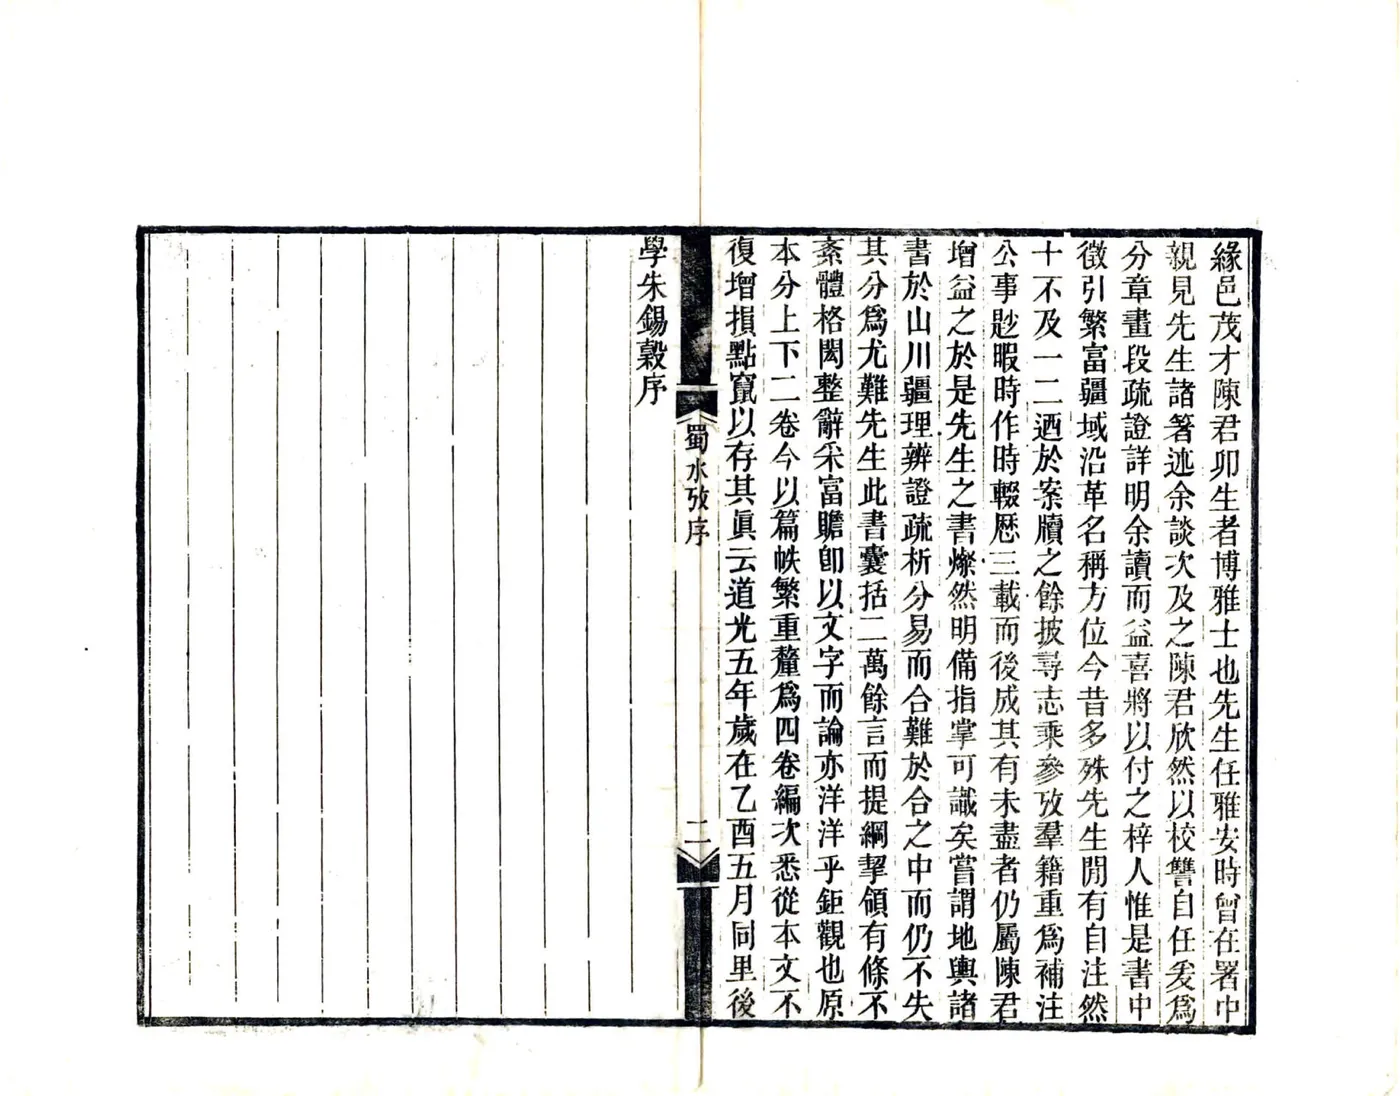 緣邑茂才陳君卯生者博雅士也先生任雅安時曾在署中
親見先生諸著述余談次及之陳君欣然以校讐自任爰爲
分章畫段疏證詳明余讀而益喜將以付之梓人惟是書中
徵引繁富疆域沿革名稱方位今昔多殊先生閒有自注然
十不及一二迺於案牘之餘披尋志乘參攷羣籍重爲補注
公事尟暇時作時輟歷三載而後成其有未盡者仍屬陳君
增益之於是先生之書燦然明備指掌可識矣嘗謂地輿諸
書於山川疆理辨證疏析分易而合難於合之中而仍不失
其分爲尤難先生此書囊括二萬餘言而提綱挈領有條不
紊體格閎整辭采富贍卽以文字而論亦洋洋乎鉅觀也原
本分上下二卷今以篇帙繁重釐爲四卷編次悉從本文不
復增損點竄以存其眞云道光五年歲在乙酉五月同里後
學朱錫穀序
蜀水攷序
二